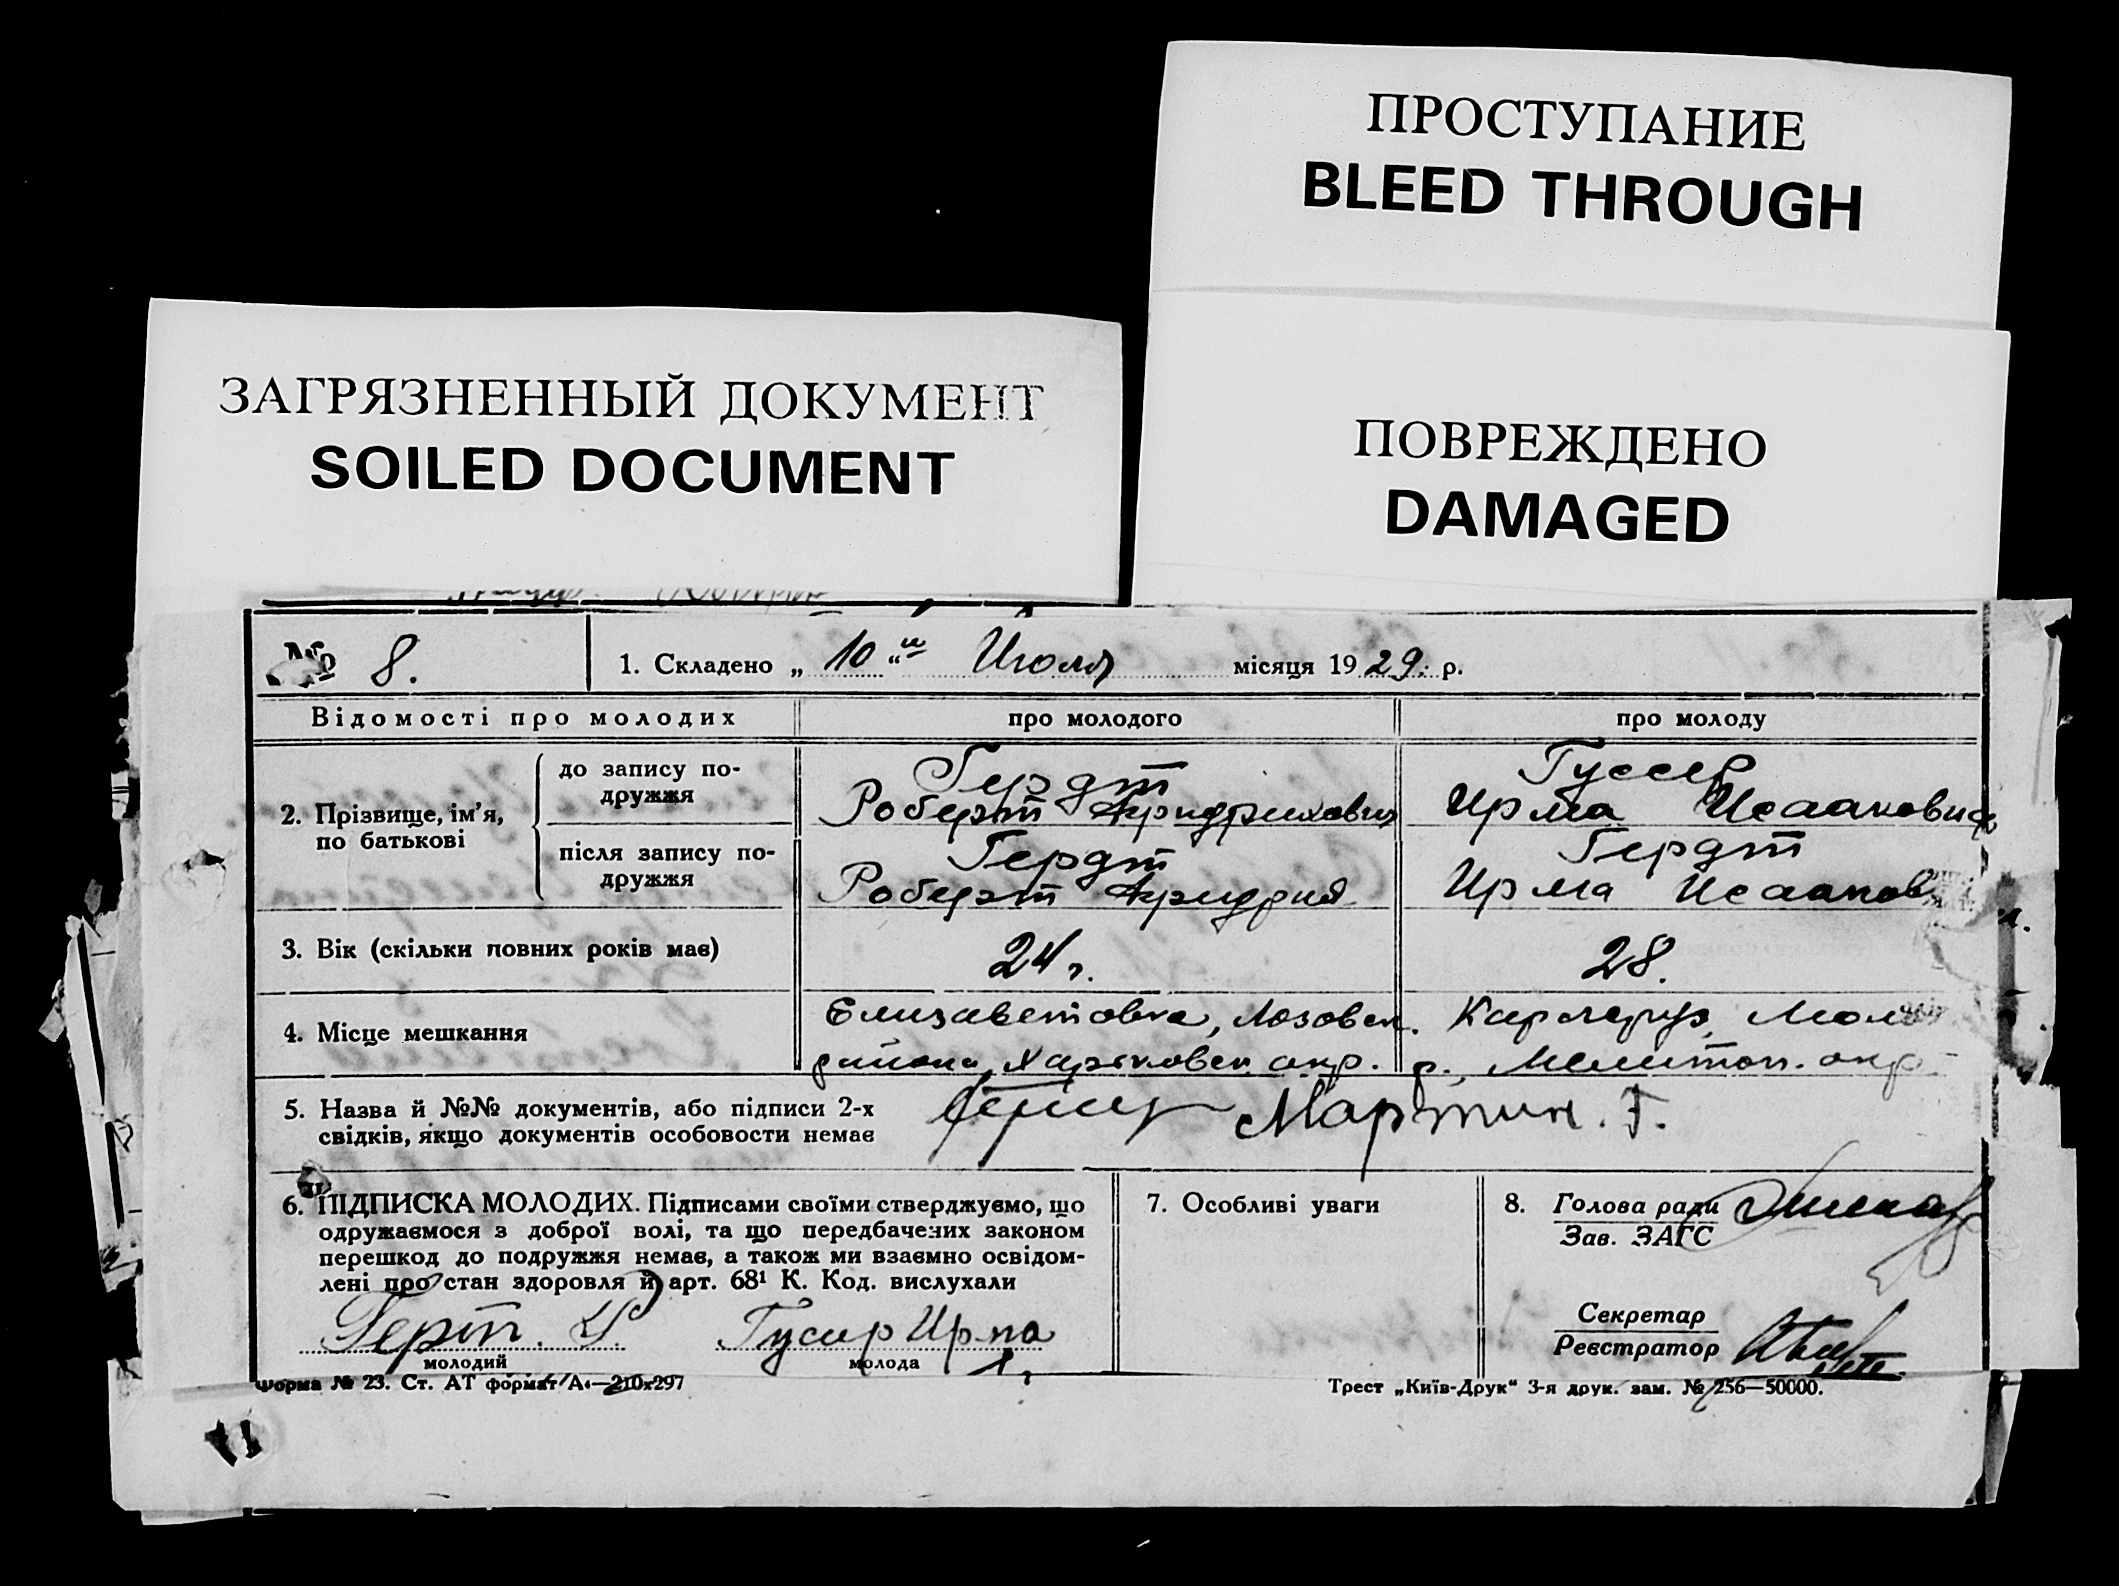 ПРОСТУПАНИЕ
BLEED THROUGH
ЗАГРЯЗНЕННЫЙ ДОКУМЕНТ
SOILED DOCUMENT
ПОВРЕЖДЕНО
DAMAGED
№ 8.
1. Складено „ 10 “ го Июля місяця 19 29. р.
Відомості про молодих
про молодого
про молоду
2. Прізвище, ім’я,
по батькові
до запису по-
дружжя
Гердт
Роберт Фридрихович
Гуссер
Ирма Исааковна
після запису по-
дружжя
Гердт
Роберт Фридрих
Гердт
Ирма Исааков
3. Вік (скільки повних років має)
24 г.
28.
4. Місце мешкання
Елизаветовка, Лозовск.
района, Харьковск. окр.
Карлсруэ, Мол
р., Мелитоп. окр.
5. Назва й №№ документів, або підписи 2-х
свідків, якщо документів особовости немає
Мартин. Г.
6. ПІДПИСКА МОЛОДИХ. Підписами своїми стверджуємо, що
одружаємося з доброї волі, та що передбачених законом
перешкод до подружжя немає, а також ми взаємно освідом-
лені про стан здоровля й арт. 68¹ К. Код. вислухали
Герт. Р.
молодий
Гусир Ирма
молода
7. Особливі уваги
8. Голова ради
Зав. ЗАГС
Секретар
Реєстратор
Форма № 23. Ст. АТ формат А4—210х297
Трест „Київ-Друк“ 3-я друк. зам. № 256—50000.